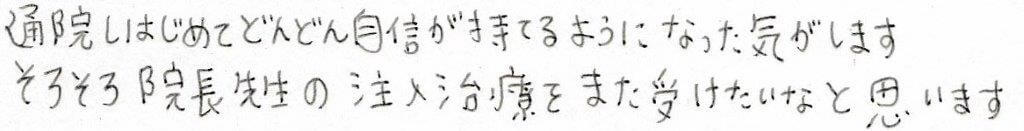 通院しはじめてどんどん自信が持てるようになった気がします
そろそろ院長先生の注入治療をまた受けたいなと思います